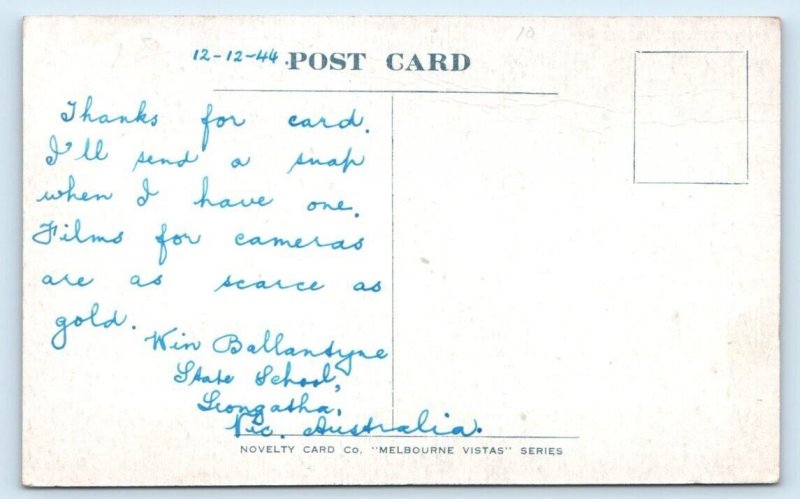 12-12-44. POST CARD
Thanks for card.
I'll send a snap
when I have one.
Films for cameras
are as scarce as
gold.
Win Ballantyne
State School,
Leongatha,
Vic. Australia.
NOVELTY CARD CO. "MELBOURNE VISTAS" SERIES